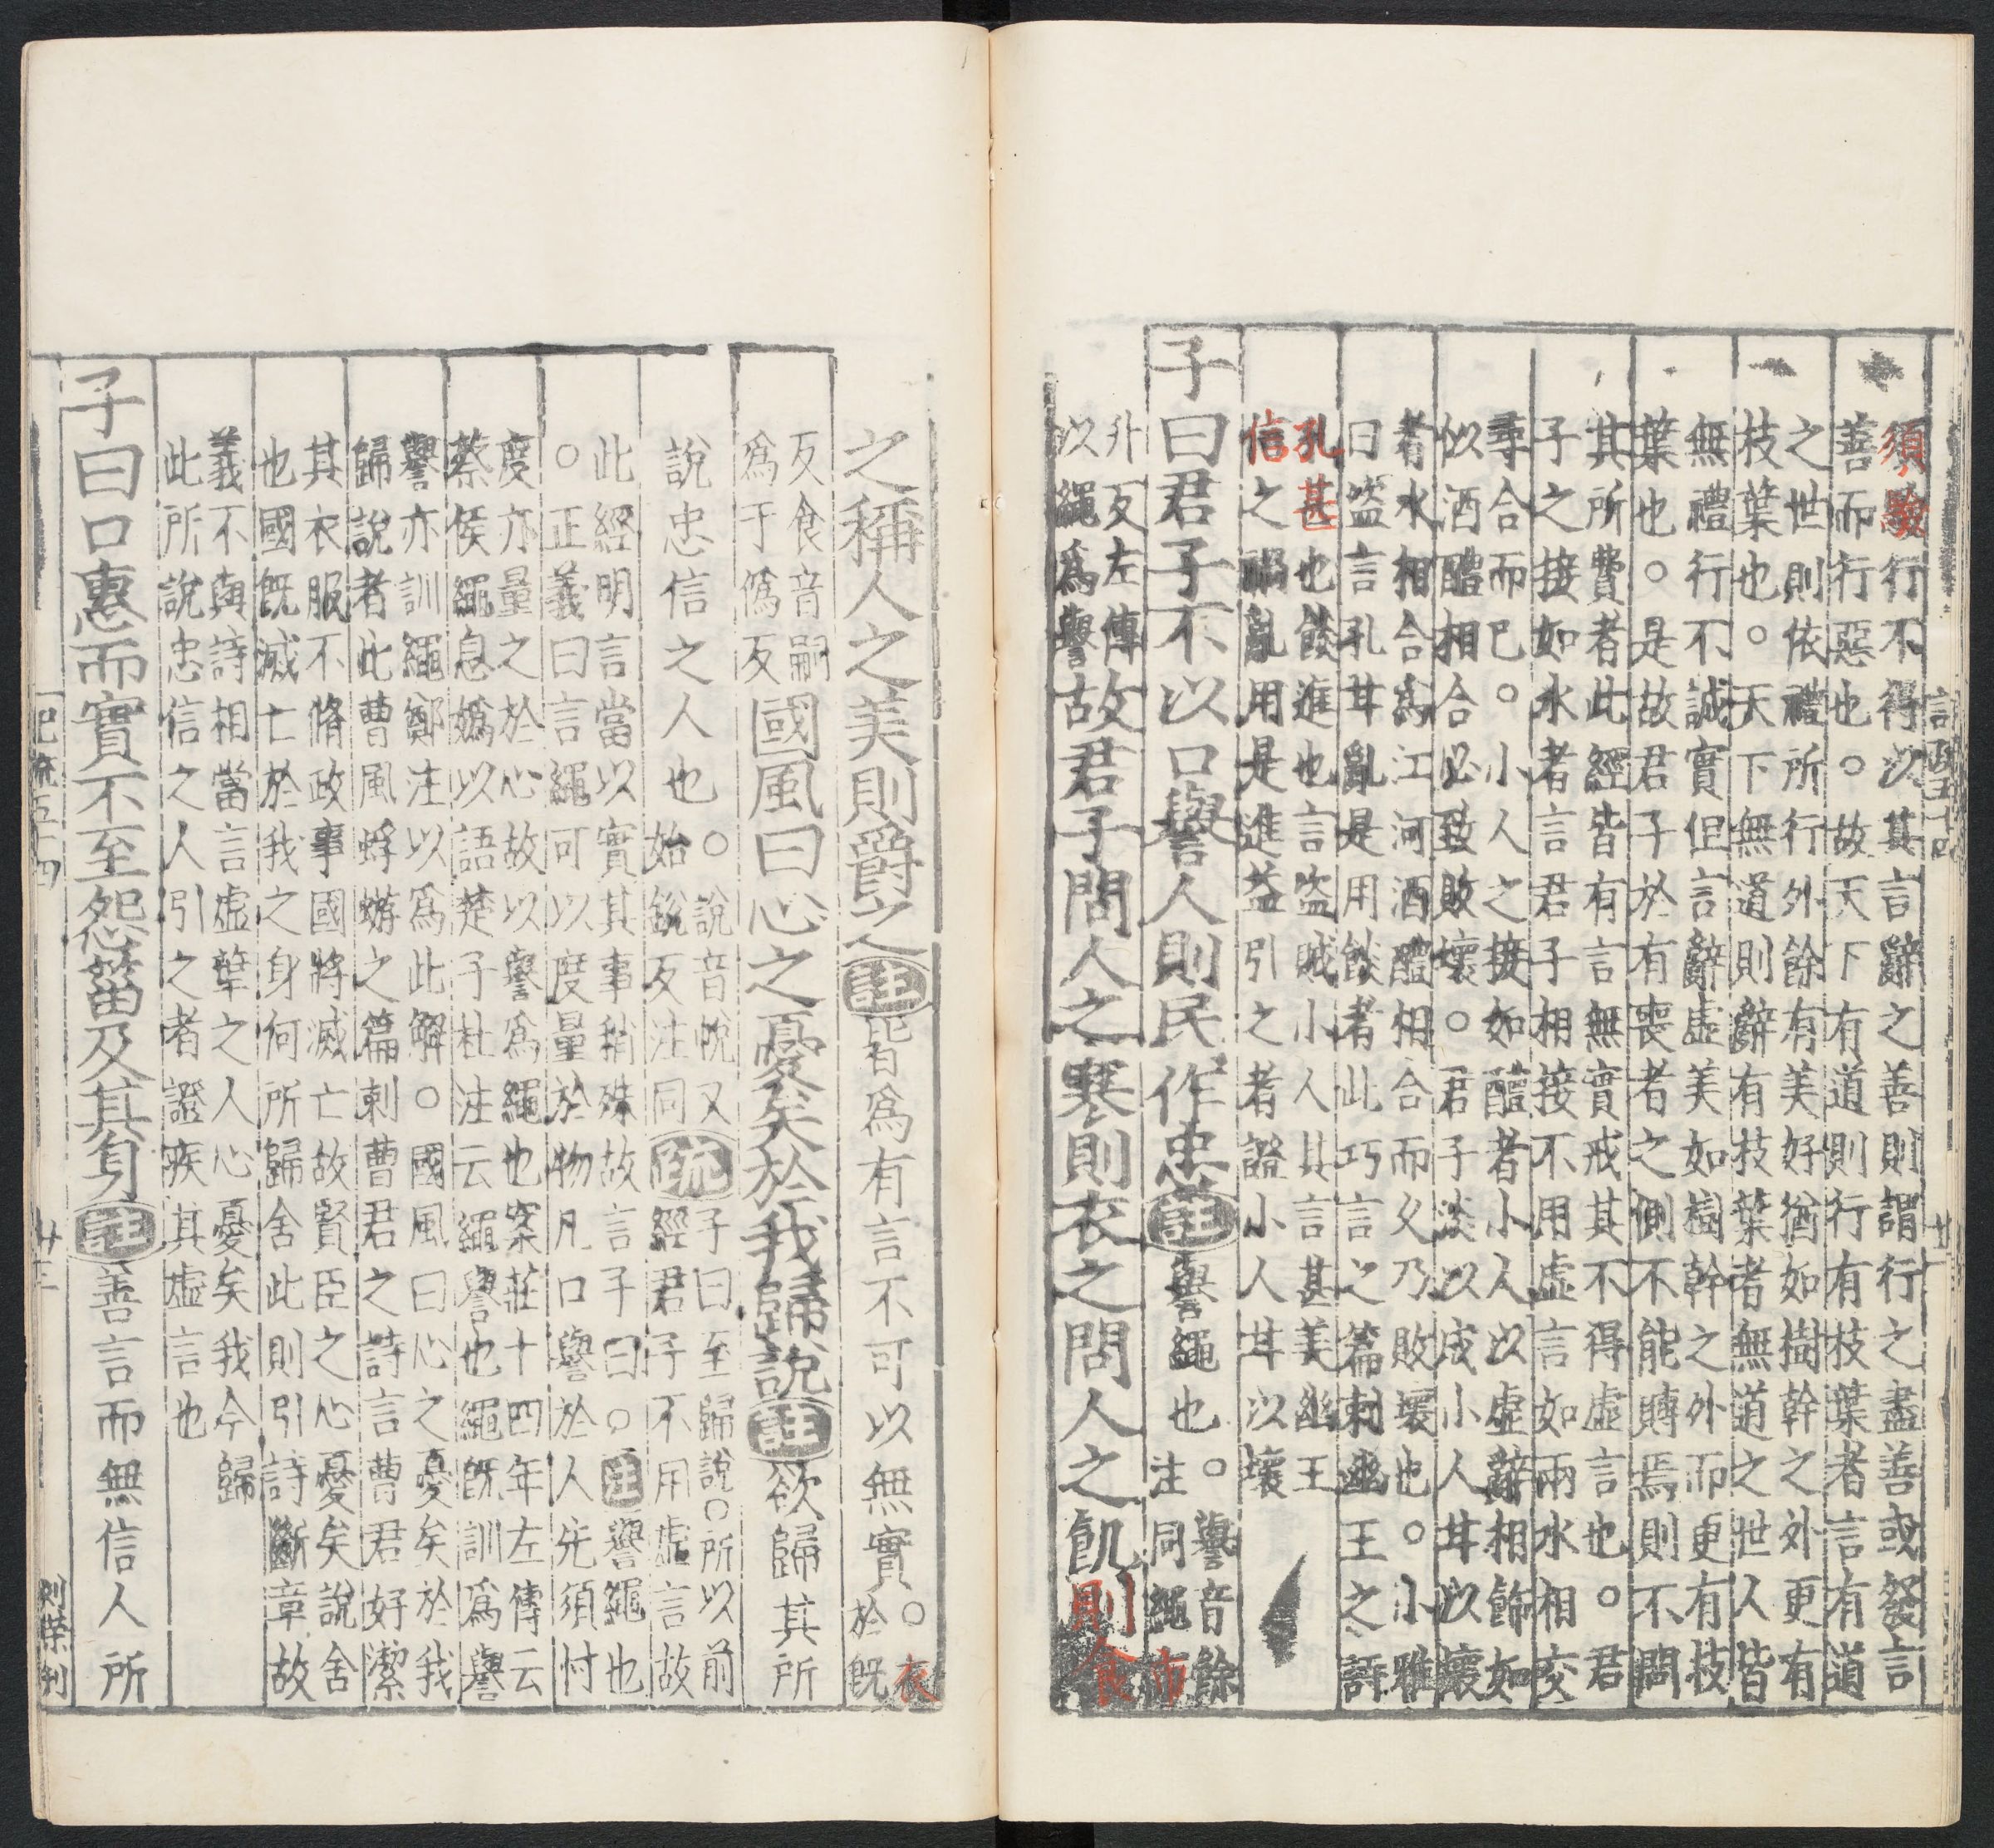 須驗行不得以其言辭之善則謂行之盡善或發言
善而行惡也○故天下有道則行有枝葉者言有道
之世則依禮所行外餘有美好猶如樹幹之外更有
枝葉也○天下無道則辭有枝葉者無道之世人皆
無禮行不誠實但言辭虛美如樹幹之外而更有枝
葉也○是故君子於有喪者之側不能賻焉則不問
其所費者此經皆有言無實戒其不得虛言也○君
子之接如水者言君子相接不用虛言如兩水相交
尋合而已○小人之接如醴者小人以虛辭相飾如
似酒醴相合必致敗壞○君子淡以成小人甘以壞
者水相合爲江河酒醴相合而久乃敗壞也○小雅
曰盜言孔甘亂是用餤者此巧言之篇刺幽王之詩
孔甚也餤進也言盜賊小人其言甚美幽王
信之禍亂用是進益引之者證小人甘以壞
子曰君子不以口譽人則民作忠註譽繩也○譽音餘
注同繩市
升反左傳
以繩爲譽故君子問人之寒則衣之問人之飢則食
之稱人之美則爵之註皆爲有言不可以無實○衣
於旣
反食音嗣
爲于僞反國風曰心之憂矣於我歸說註欲歸其所
說忠信之人也○說音悅又
始銳反注同疏子曰至歸說○
經君子不用虛言故
正義曰所以前
此經明言當以實其事稍殊故言子曰○注譽繩也
○正義曰言繩可以度量於物凡口譽於人先須忖
度亦量之於心故以譽爲繩也案莊十四年左傳云
蔡侯繩息嬀以語楚子杜注云繩譽也繩旣訓爲譽
譽亦訓繩鄭注以爲此解○國風曰心之憂矣於我
歸說者此曹風蜉蝣之篇刺曹君之詩言曹君好潔
其衣服不脩政事國將滅亡故賢臣之心憂矣說舍
也國旣滅亡於我之身何所歸舍此則引詩斷章故
義不與詩相當言虛華之人心憂矣我今歸
此所說忠信之人引之者證疾其虛言也
子曰口惠而實不至怨菑及其身註善言而無信人所